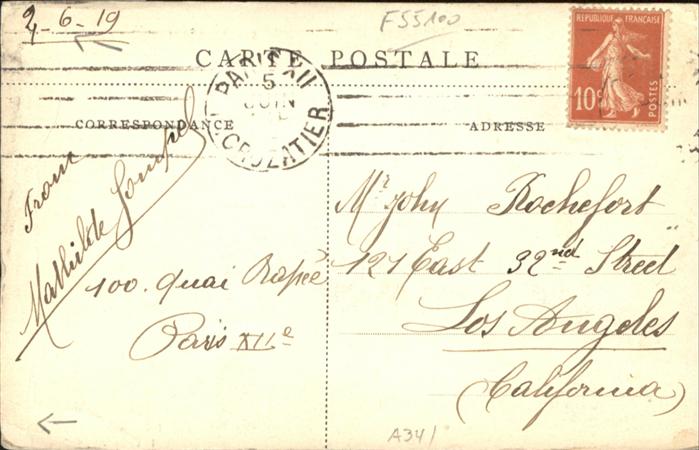 2-6-19
F55100
CARTE POSTALE
REPUBLIQUE FRANÇAISE
10c
POSTES
PARIS XII
5
JUIN
CROZATIER
CORRESPONDANCE
ADRESSE
From
Mathilde
100. Quai Rapée
Paris XIIe
Mr. John Rochefort
121 East 32nd Street
Los Angeles
(California)
A34/